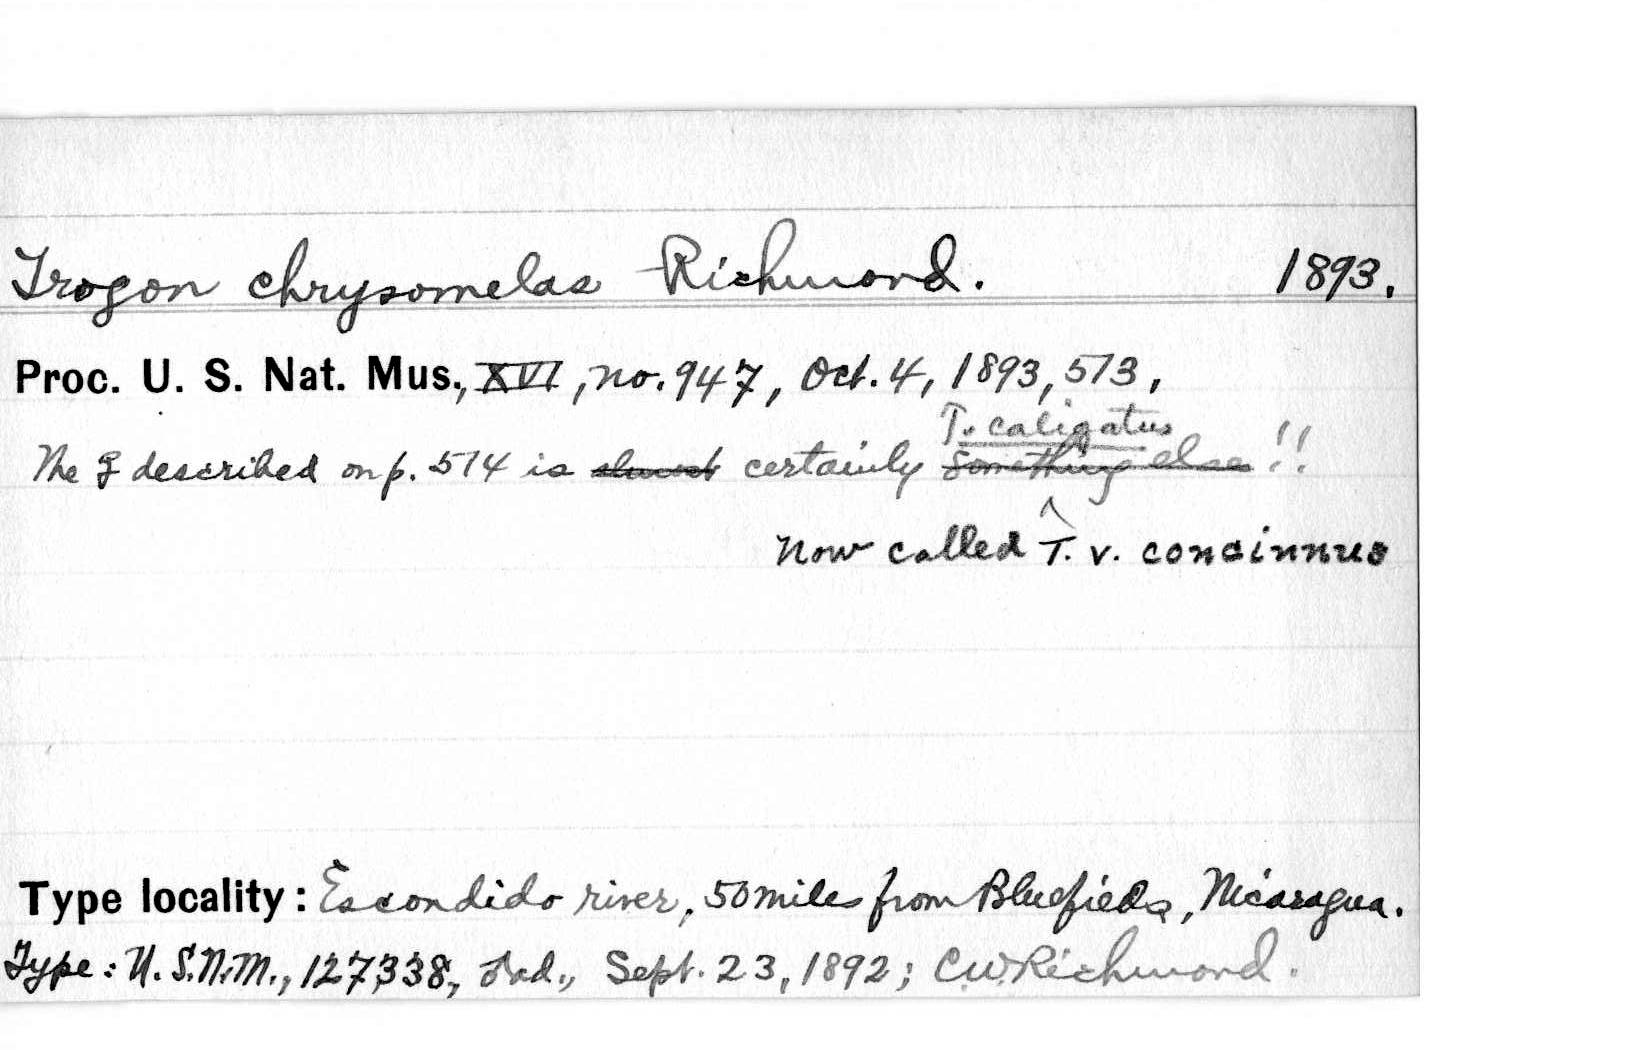 Trogon chrysomelas Richmond. 1893.
Proc. U. S. Nat. Mus., XVI, no. 947, Oct. 4, 1893, 573,
T. caligatus
The ♀ described on p. 574 is almost certainly something else!!
^
Now called T. v. concinnus
Type locality: Escondido river, 50 miles from Bluefields, Nicaragua.
Type: U.S.N.M., 127338, ♂ ad., Sept. 23, 1892; C.W. Richmond.